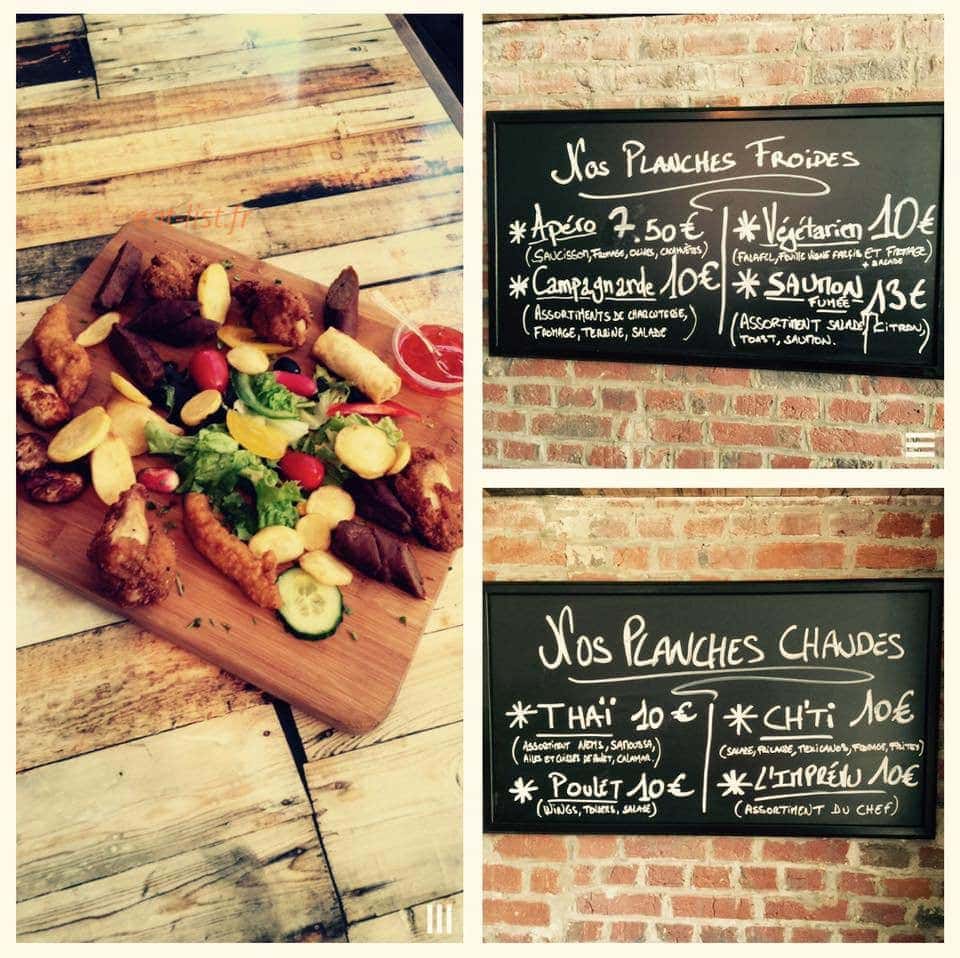 list.fr
Nos PLANCHES FROIDES
* Apéro 7.50€
(SAUCISSON, FROMAGE, OLIVES, CACAHUÈTES)
* Campagnarde 10€
(ASSORTIMENTS DE CHARCUTERIE,
FROMAGE, TERRINE, SALADE)
* Végétarien 10€
(FALAFEL, FEUILLE VIGNE FARCIE ET FROMAGE
+ SALADE
* SAUMON 13€
FUMÉE
(ASSORTIMENT SALADE, CITRON,
TOAST, SAUMON.
Nos PLANCHES CHAUDES
* THAÏ 10€
(ASSORTIMENT NEMS, SAMOUSSA,
AILES ET CUISSES DE POULET, CALAMAR.)
* POULET 10€
(WINGS, TENDERS, SALADE)
* CH'TI 10€
(SALADE, FRICANDE, MEXICANOS, FROMAGE, FRITES)
* L'IMPRÉVU 10€
(ASSORTIMENT DU CHEF)